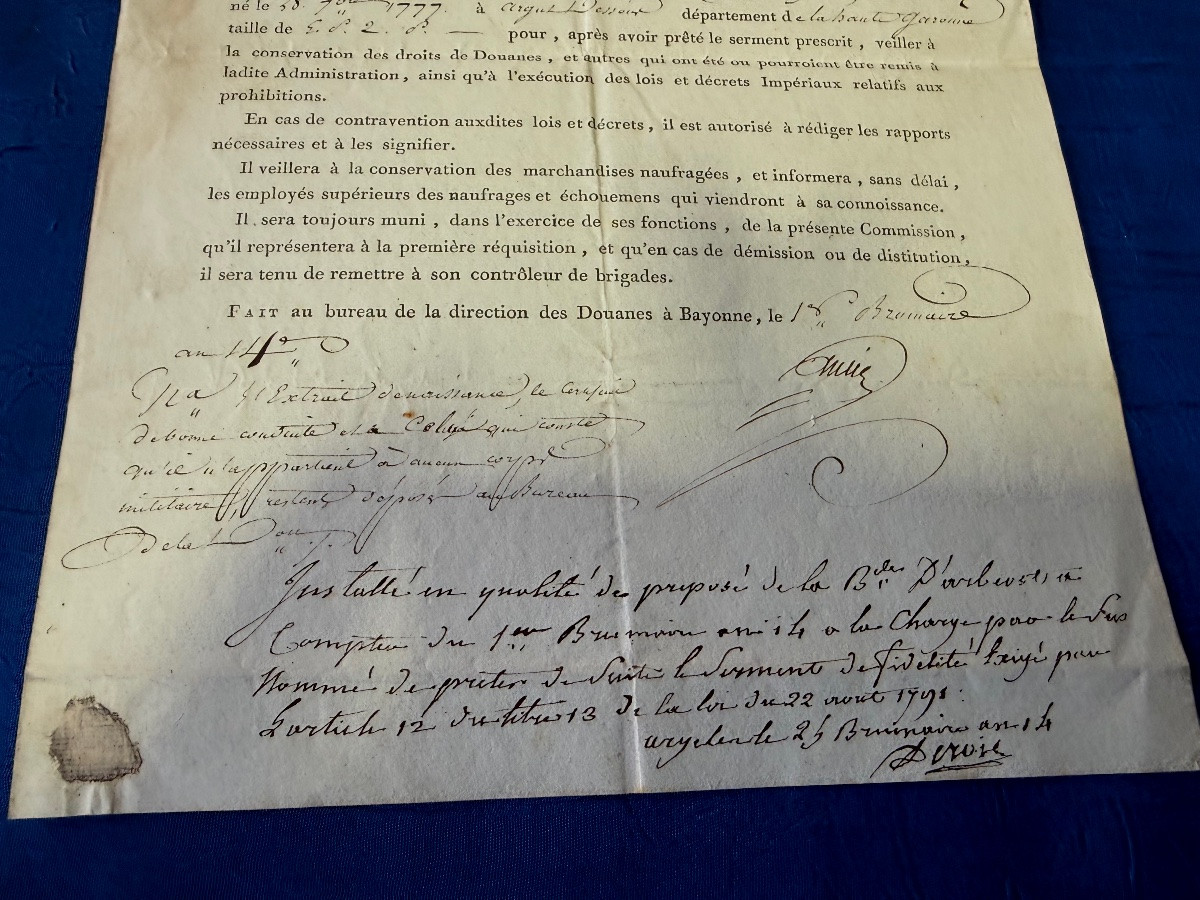 né le 1777. à argut Dessous département de la haute Garonne
taille de 5 P. 2. P. pour, après avoir prêté le serment prescrit, veiller à
la conservation des droits de Douanes, et autres qui ont été ou pourroient être remis à
ladite Administration, ainsi qu'à l'exécution des lois et décrets Impériaux relatifs aux
prohibitions.
En cas de contravention auxdites lois et décrets, il est autorisé à rédiger les rapports
nécessaires et à les signifier.
Il veillera à la conservation des marchandises naufragées, et informera, sans délai,
les employés supérieurs des naufrages et échouemens qui viendront à sa connoissance.
Il sera toujours muni, dans l'exercice de ses fonctions, de la présente Commission,
qu'il représentera à la première réquisition, et qu'en cas de démission ou de distitution,
il sera tenu de remettre à son contrôleur de brigades.
FAIT au bureau de la direction des Douanes à Bayonne, le 1er Brumaire
an 14e
Na L'Extrait de naissance, le Certificat
de bonne conduite et Celui qui conste
qu'il n'appartient à aucun corps
militaire, restent déposés au Bureau
de la Don
Installé en qualité de preposé de la Bde D'arbeost a
Compter du 1er Brumaire an 14 a la Charge par le Sus
Nommé de preter de Suite le Serment de fidélité Exigé par
Larticle 12 du titre 13 de la loi du 22 aout 1791.
25 Brumaire an 14